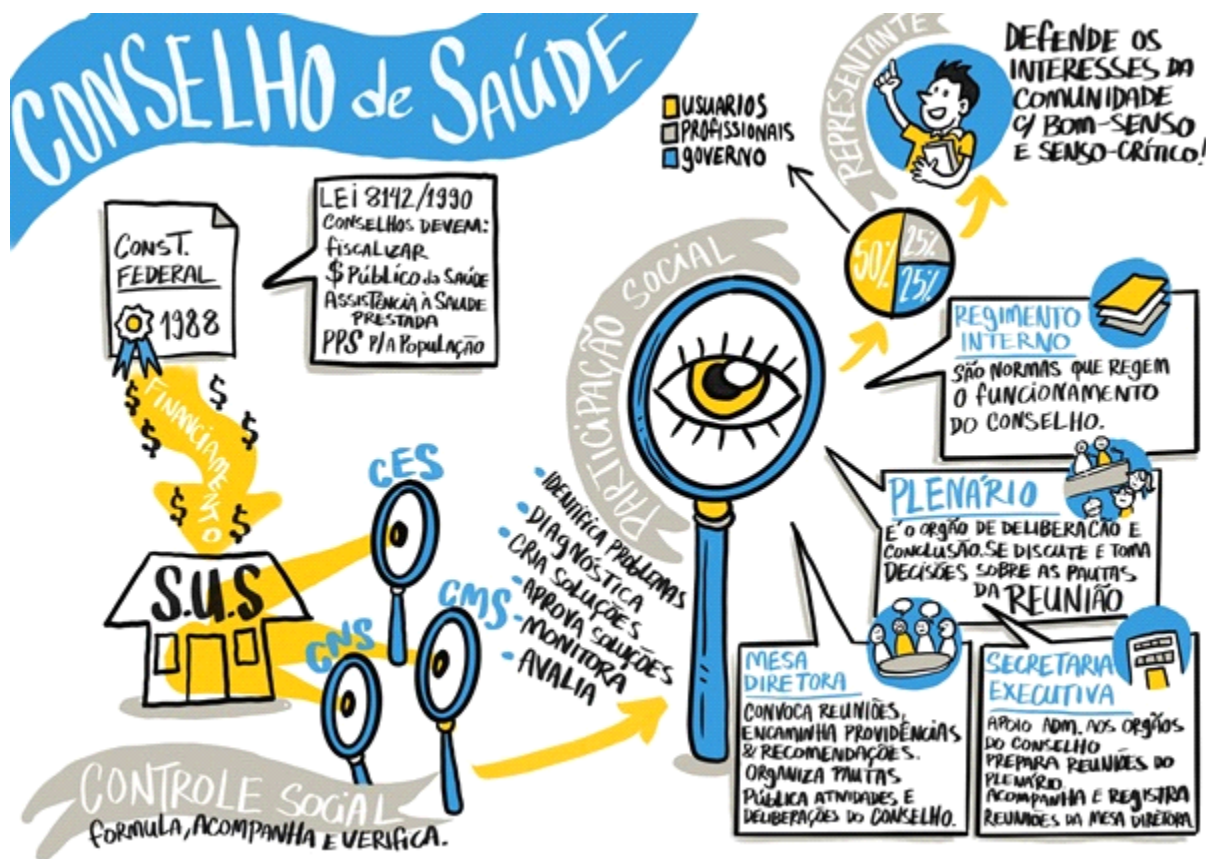 CONSELHO de SAÚDE
CONST.
FEDERAL
1988
LEI 8142/1990
CONSELHOS DEVEM:
FISCALIZAR
$ PÚBLICO da SAÚDE
ASSISTÊNCIA À SAUDE
PRESTADA
PPS P/A POPULAÇÃO
FINANCIAMENTO
$
$
$
$
$
$
S.U.S
CES
CMS
CNS
CONTROLE SOCIAL
FORMULA, ACOMPANHA E VERIFICA.
• IDENTIFICA PROBLEMAS
• DIAGNÓSTICA
• CRIA SOLUÇÕES
• APROVA SOLUÇÕES
• MONITORA
• AVALIA
PARTICIPAÇÃO SOCIAL
USUARIOS
PROFISSIONAIS
GOVERNO
50%
25%
25%
REPRESENTANTE
DEFENDE OS
INTERESSES DA
COMUNIDADE
C/ BOM-SENSO
E SENSO-CRÍTICO!
REGIMENTO
INTERNO
SÃO NORMAS QUE REGEM
O FUNCIONAMENTO
DO CONSELHO.
PLENÁRIO
É O ORGÃO DE DELIBERAÇÃO E
CONCLUSÃO. SE DISCUTE E TOMA
DECISÕES SOBRE AS PAUTAS
DA REUNIÃO
MESA
DIRETORA
CONVOCA REUNIÕES,
ENCAMINHA PROVIDÊNCIAS
& RECOMENDAÇÕES.
ORGANIZA PAUTAS
PÚBLICA ATIVIDADES E
DELIBERAÇÕES DO CONSELHO.
SECRETARIA
EXECUTIVA
APOIO ADM. AOS ORGÃOS
DO CONSELHO
PREPARA REUNIÕES DO
PLENÁRIO.
ACOMPANHA E REGISTRA
REUNIÕES DA MESA DIRETORA